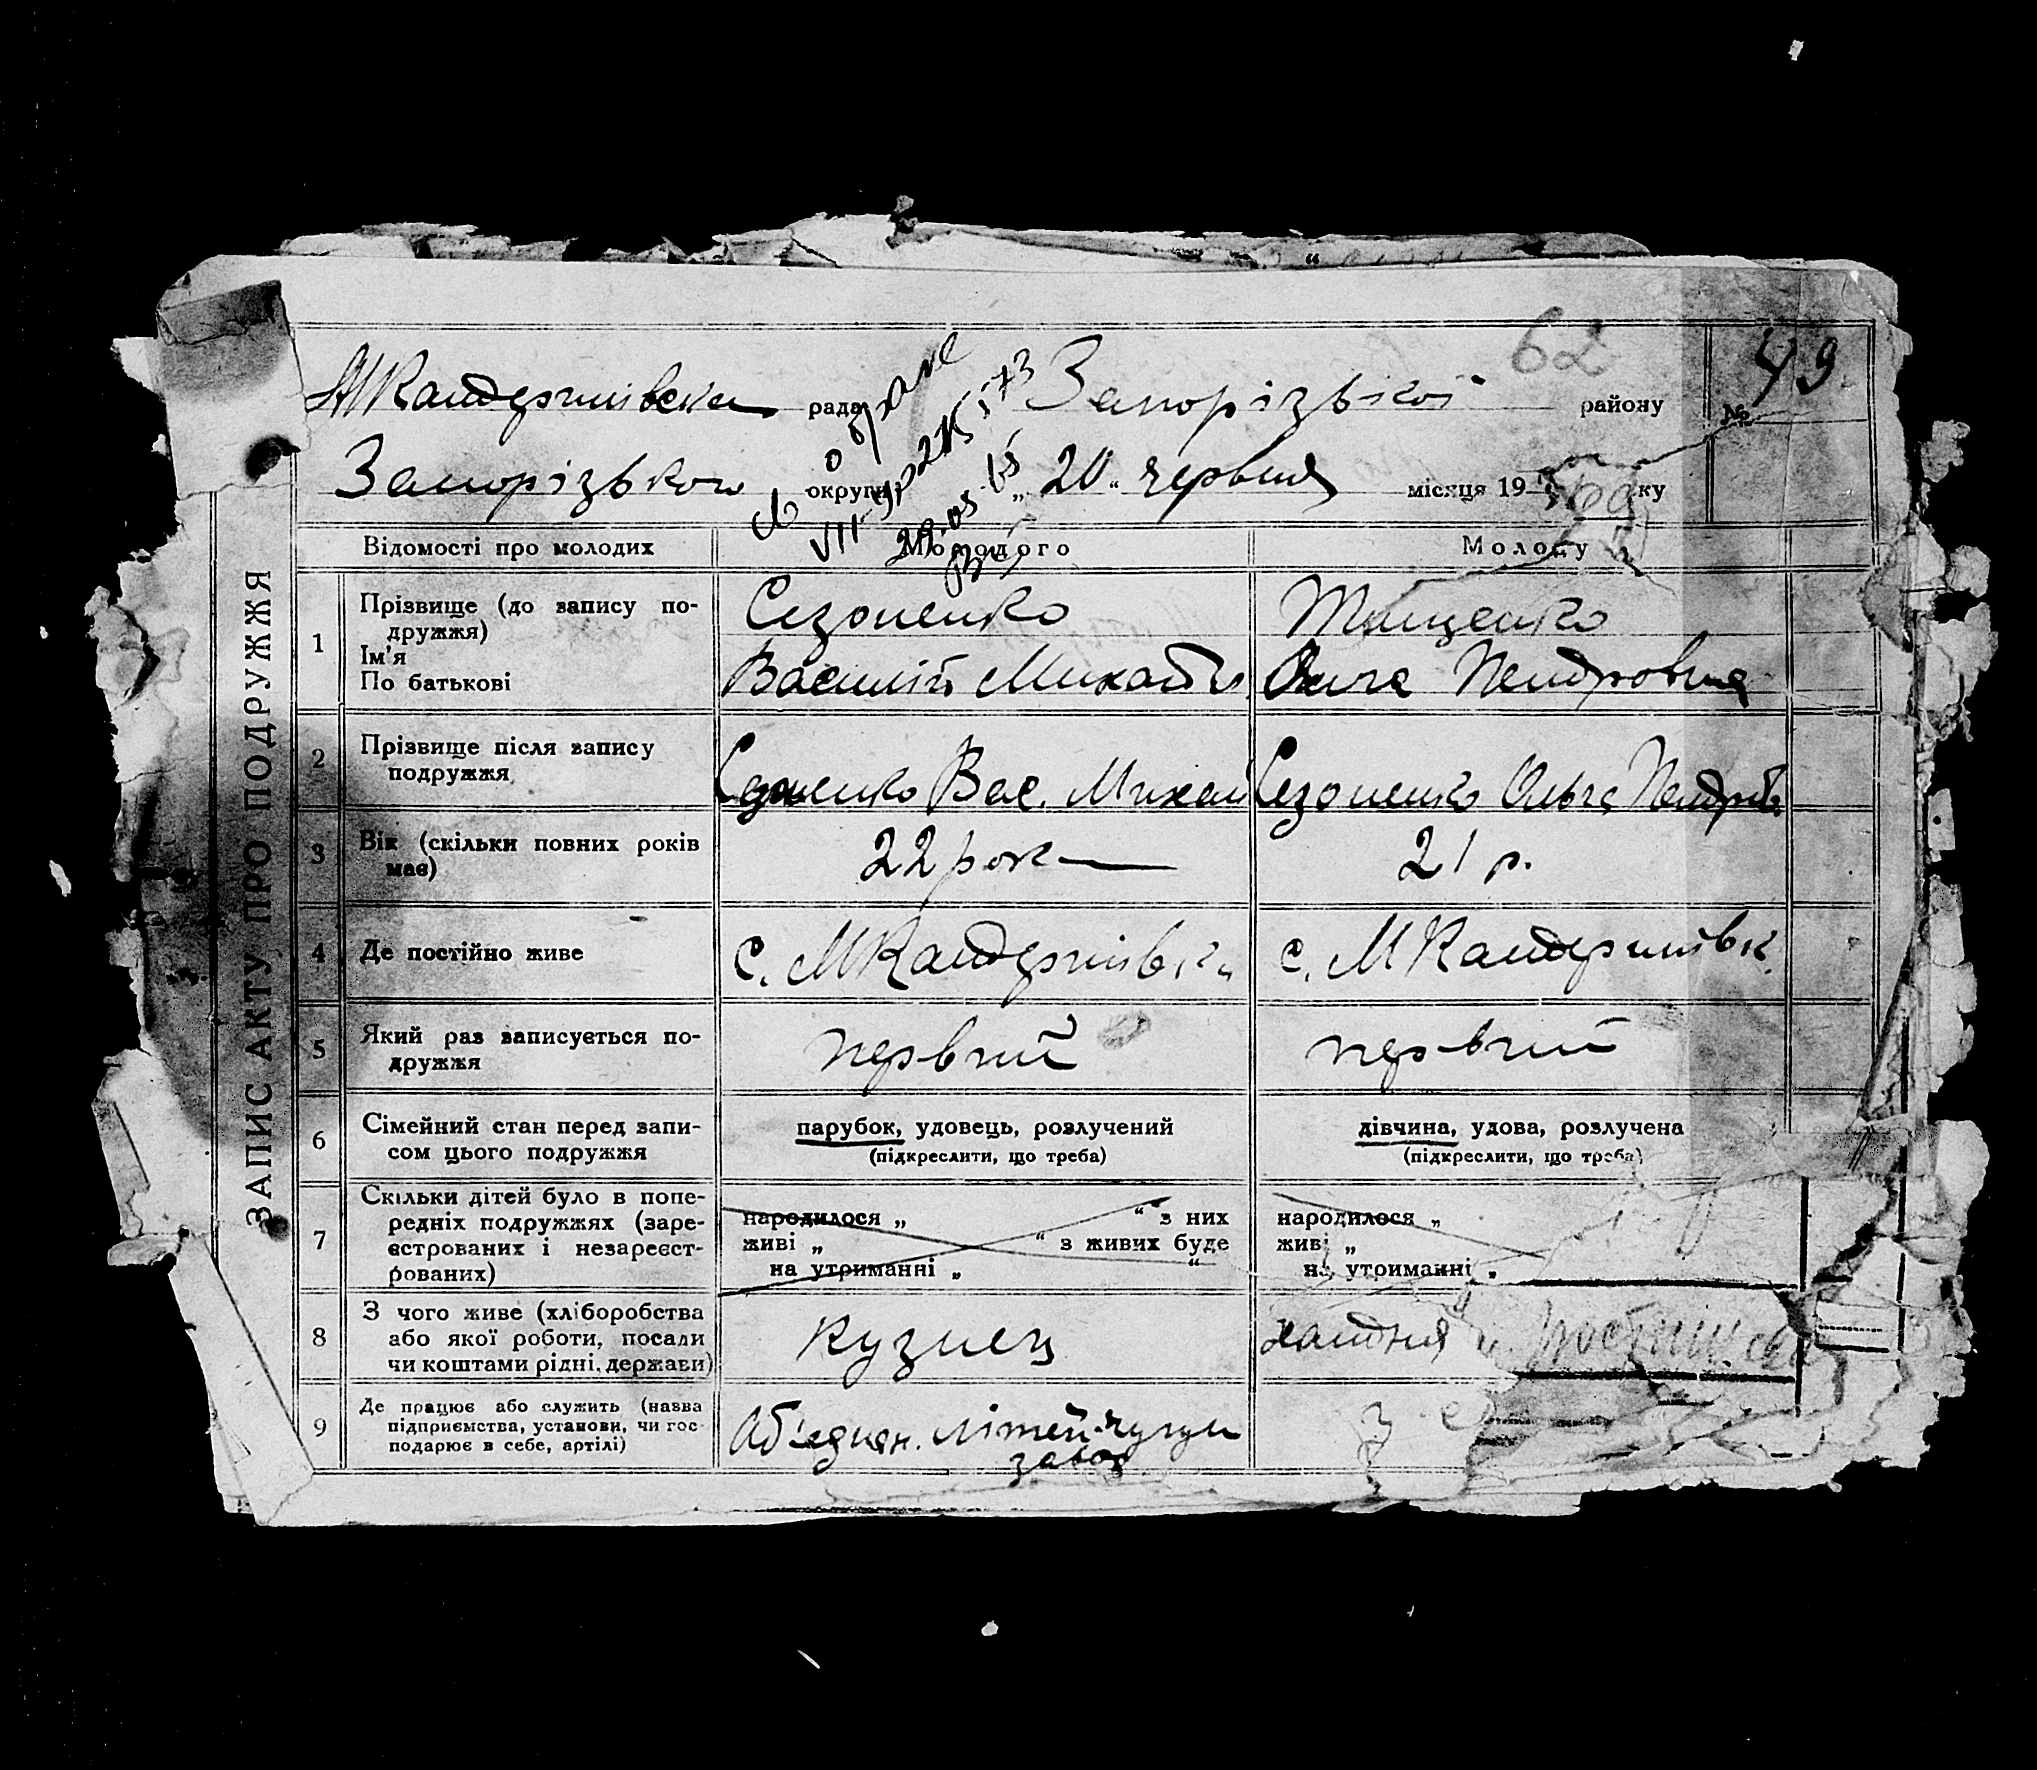 ЗАПИС АКТУ ПРО ПОДРУЖЖЯ
62
№ 49
рада Запорізької району
Запорізької округи „20“ червня місяця 19 ку
Св о браке
VII-ЯР 275173
29.05.
Відомості про молодих Молодого Молоду
1 Прізвище (до запису по-
дружжя)
Ім'я
По батькові
Сезоненко
Василій Михайл.
Тищенко
Ольга Петровна
2 Прізвище після запису
подружжя
Сезоненко Вас. Михай
Сезоненко Ольга Петров.
3 Вік (скільки повних років
має)
22 рок
21 р.
4 Де постійно живе
с. МКантеримівк
с. МКантеримівк.
5 Який раз записується по-
дружжя
первий
первий
6 Сімейний стан перед запи-
сом цього подружжя
парубок, удовець, розлучений
(підкреслити, що треба)
дівчина, удова, розлучена
(підкреслити, що треба)
7 Скільки дітей було в попе-
редніх подружжях (заре-
єстрованих і незареєст-
рованих)
народилося „ “ з них
живі „ “ з живих буде
на утриманні „ “
народилося „
живі „
на утриманні „
8 З чого живе (хліборобства
або якої роботи, посади
чи коштами рідні, держави)
кузнец
хатня
9 Де працює або служить (назва
підприємства, установи, чи гос-
подарює в себе, артілі)
Об'єднан. літей-чугун
завод